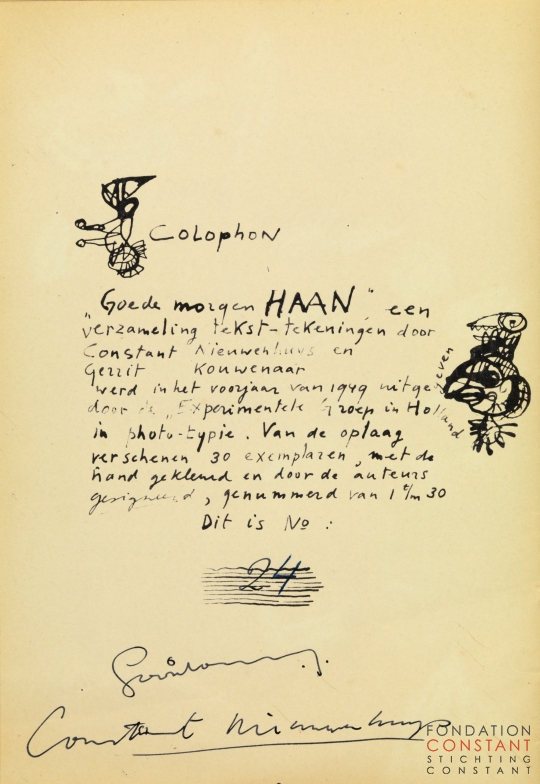 COLOPHON
„Goede morgen HAAN" een
verzameling tekst-tekeningen door
Constant Nieuwenhuys en
Gerrit Kouwenaar
werd in het voorjaar van 1949 uitgegeven
door de „Experimentele Groep in Holland
in photo-typie. Van de oplaag
verschenen 30 exemplaren, met de
hand gekleurd en door de auteurs
gesigneerd, genummerd van 1 t/m 30
Dit is No:
24
Constant Nieuwenhuys
FONDATION
CONSTANT
STICHTING
CONSTANT